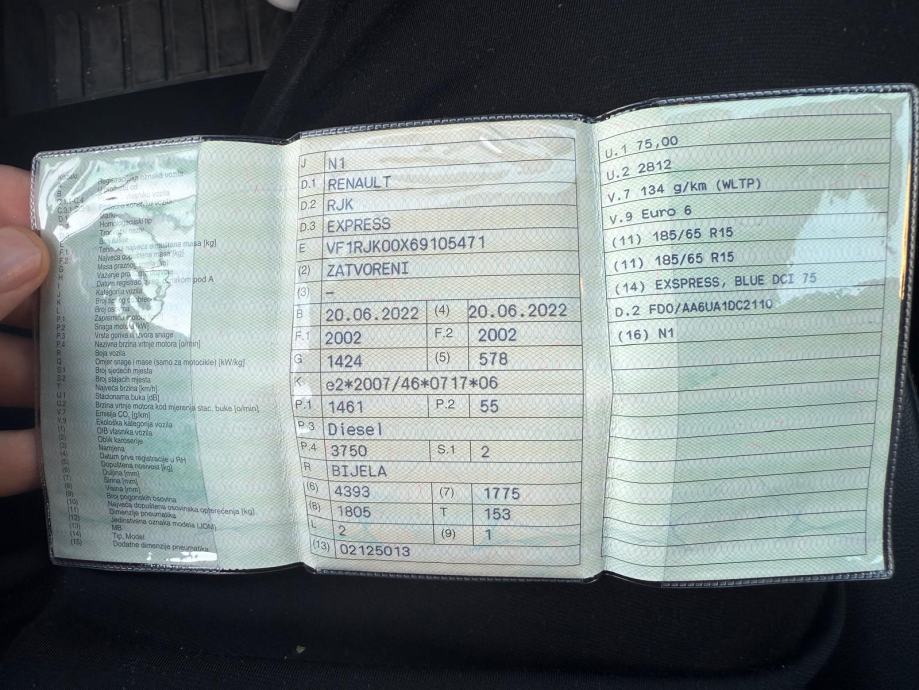 Registracijska oznaka vozila
Homologacijski tip
Najveća dopuštena masa [kg]
Kategorija vozila
Snaga motora [kW]
Vrsta goriva ili izvora snage
Nazivna brzina vrtnje motora [o/min]
Boja vozila
Omjer snage i mase (samo za motocikle) [kW/kg]
Broj sjedećih mjesta
Broj stajaćih mjesta
Najveća brzina [km/h]
Stacionarna buka [dB]
Brzina vrtnje motora kod mjerenja stac. buke [o/min]
Emisija CO₂ [g/km]
Ekološka kategorija vozila
OIB vlasnika vozila
Oblik karoserije
Namjena
Datum prve registracije u RH
Dopuštena nosivost [kg]
Duljina [mm]
Širina [mm]
Visina [mm]
Broj pogonskih osovina
Najveća dopuštena osovinska opterećenja [kg]
Dimenzije pneumatika
Jedinstvena oznaka modela (JOM)
MB
Tip, Model
Dodatne dimenzije pneumatika
J N1
D.1 RENAULT
D.2 RJK
D.3 EXPRESS
E VF1RJK00X69105471
(2) ZATVORENI
(3) –
B 20.06.2022 (4) 20.06.2022
F.1 2002 F.2 2002
G 1424 (5) 578
K e2*2007/46*0717*06
P.1 1461 P.2 55
P.3 Diesel
P.4 3750 S.1 2
R BIJELA
(6) 4393 (7) 1775
(8) 1805 T 153
L 2 (9) 1
(13) 02125013
U.1 75,00
U.2 2812
V.7 134 g/km (WLTP)
V.9 Euro 6
(11) 185/65 R15
(11) 185/65 R15
(14) EXSPRESS, BLUE DCI 75
D.2 FD0/AA6UA1DC2110
(16) N1